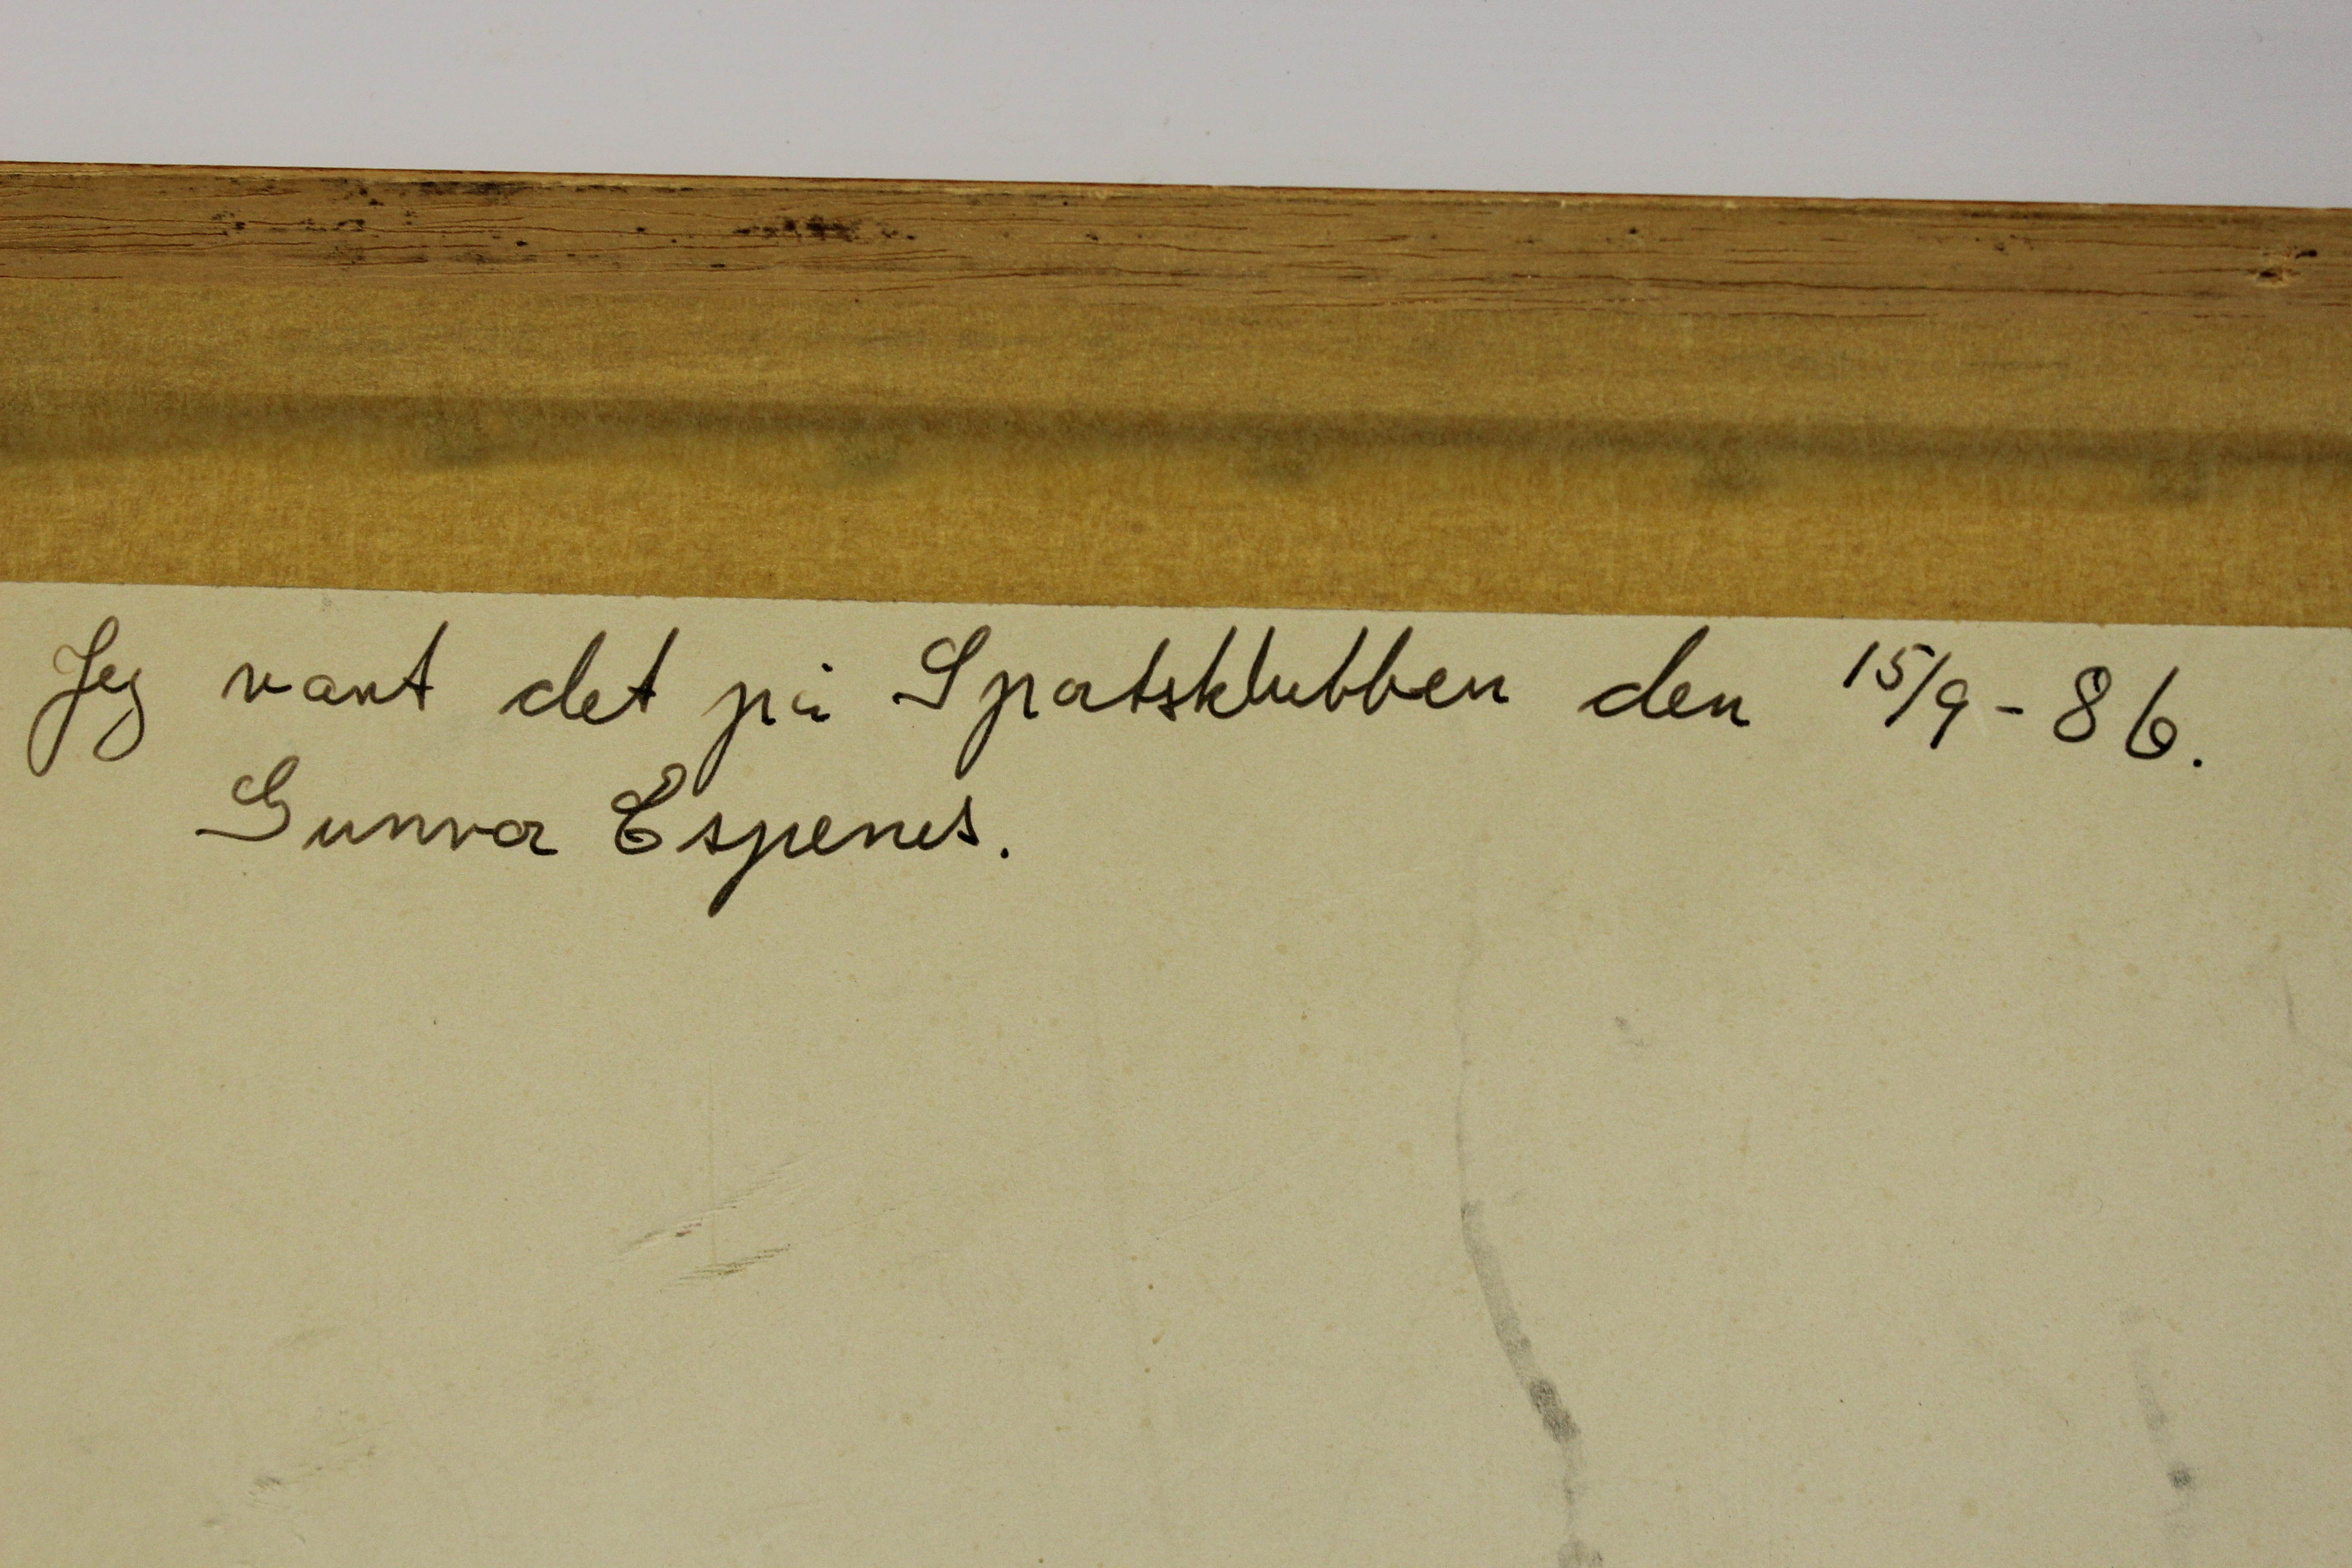 Jeg vant det på Sportsklubben den 15/9-86.
Gunvor Espenes.